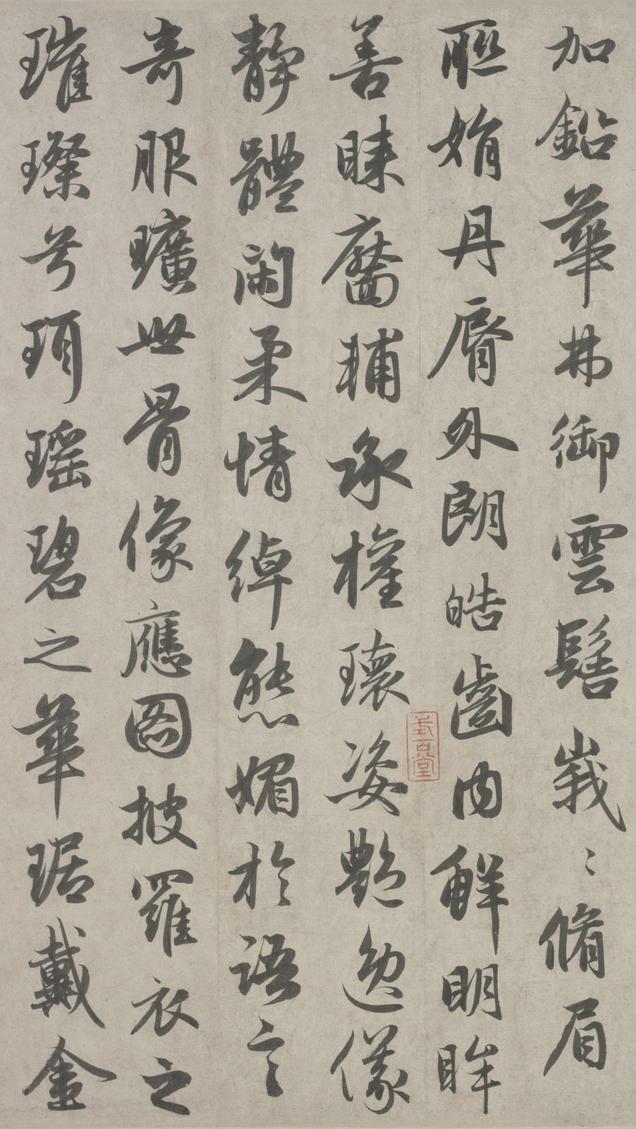 加鉛華弗御雲髻峩〻脩眉
聮娟丹脣外朗皓齒内鮮明眸
善睞靨輔承權瓌姿艷逸儀
靜體閑柔情綽態媚於語言
奇服曠世骨像應圖披羅衣之
璀璨兮珥瑤碧之華琚戴金